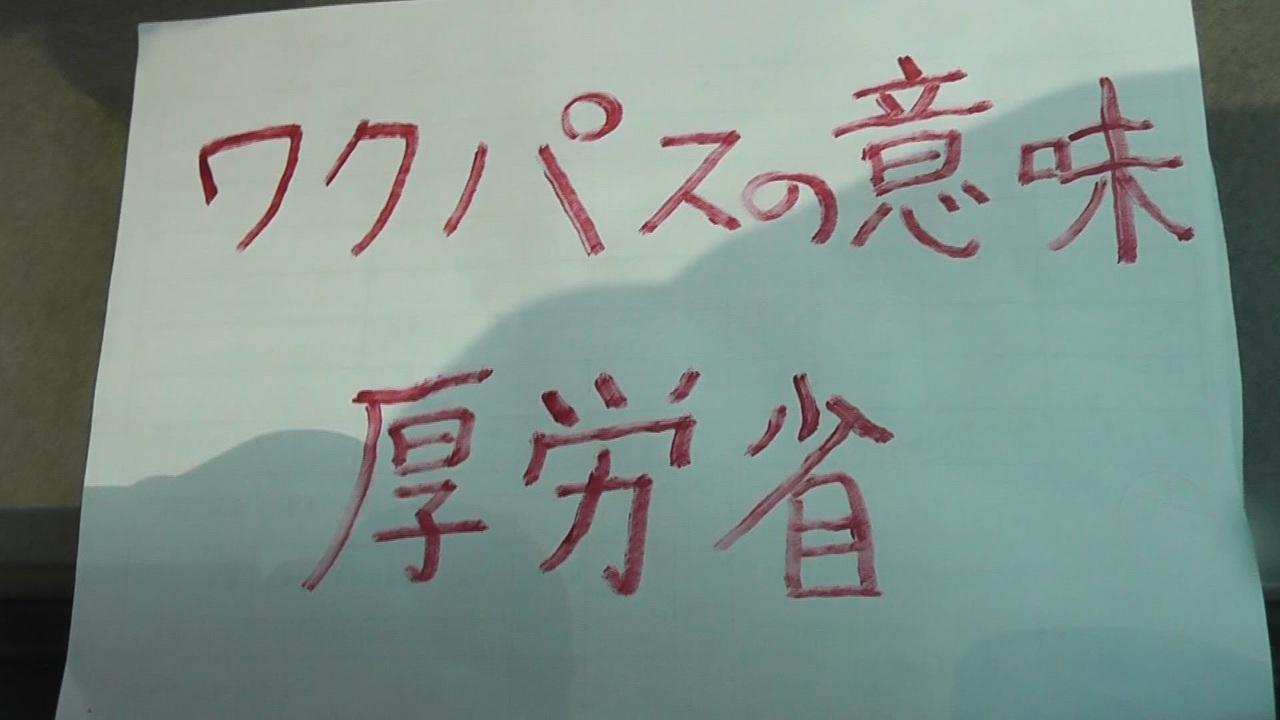 ワクパスの意味
厚労省